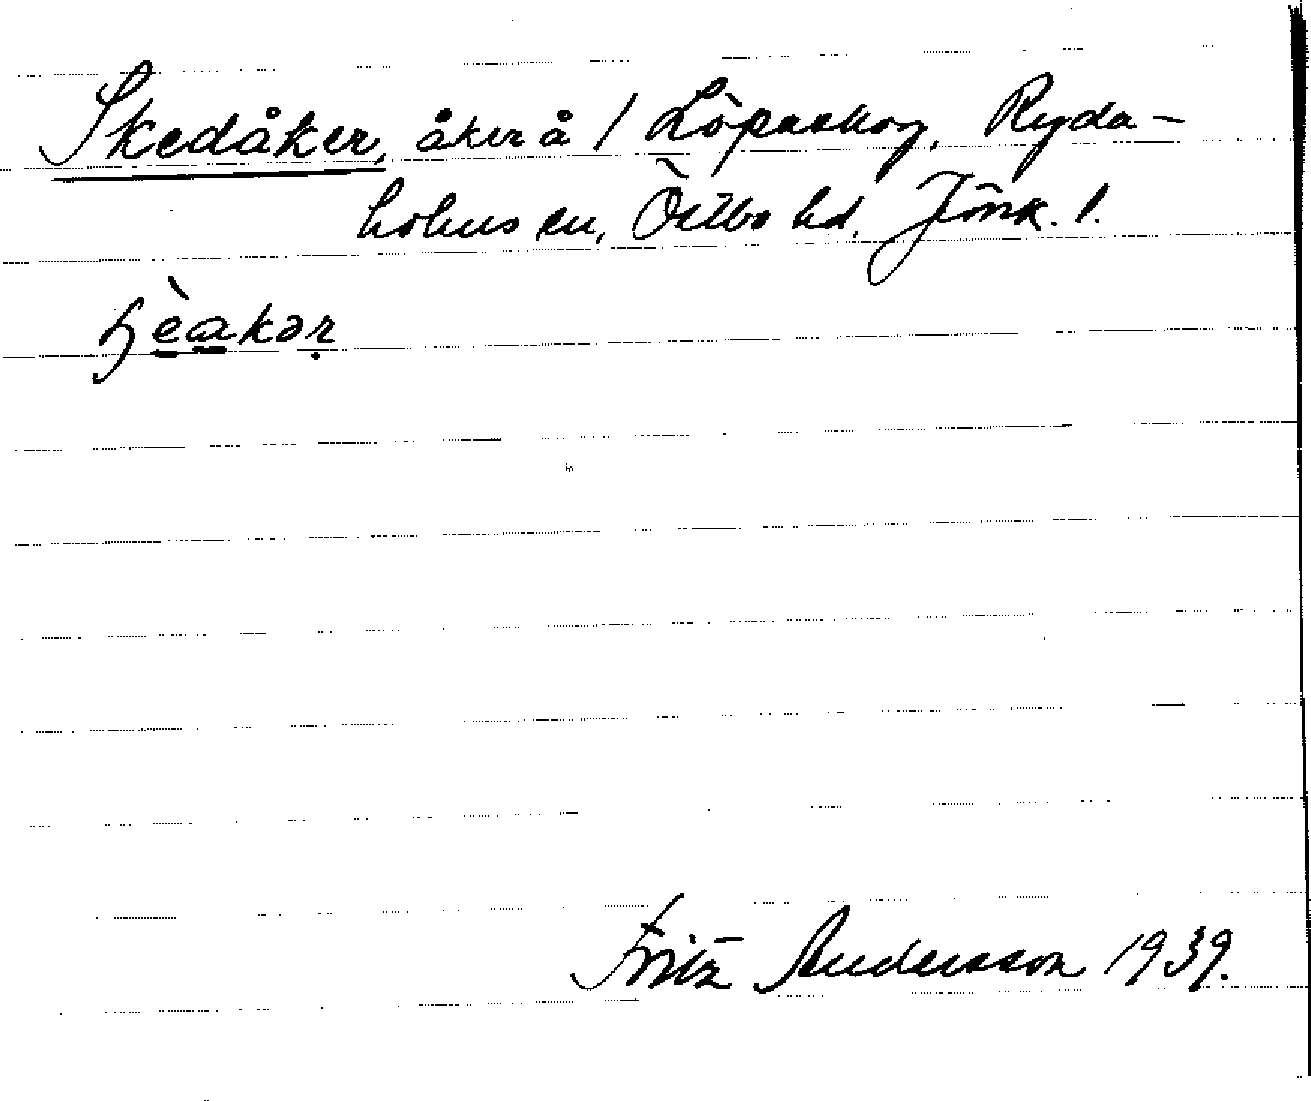 Skedåker, åker å 1 Löpaskog, Ryda-
holms sn, Östbo hd, Jönk. l.
Fritz Andersson 1939.